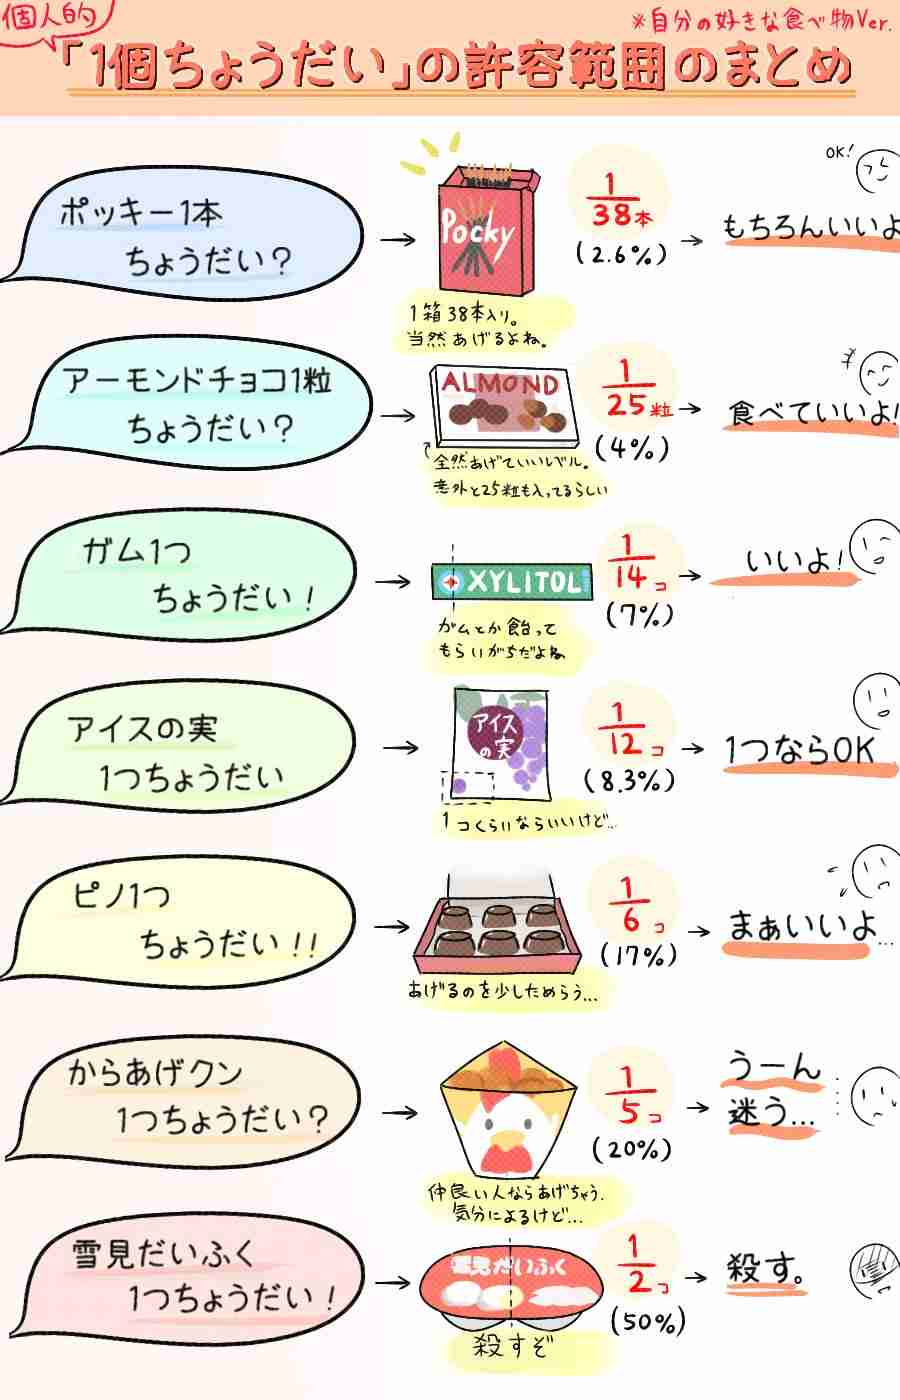 個人的
※自分の好きな食べ物Ver.
「1個ちょうだい」の許容範囲のまとめ
ポッキー1本
ちょうだい?
Pocky
1箱38本入り。
当然あげるよね。
1
38本
(2.6%)
OK!
もちろんいいよ
アーモンドチョコ1粒
ちょうだい?
ALMOND
全然あげていいレベル。
意外と25粒も入ってるらしい
1
25粒
(4%)
食べていいよ!
ガム1つ
ちょうだい!
XYLITOL
ガムとか飴って
もらいがちだよね
1
14コ
(7%)
いいよ!
アイスの実
1つちょうだい
アイス
の実
1つくらいならいいけど…
1
12コ
(8.3%)
1つならOK
ピノ1つ
ちょうだい!!
あげるのを少しためらう…
1
6コ
(17%)
まぁいいよ…
からあげクン
1つちょうだい?
仲良い人ならあげちゃう.
気分によるけど…
1
5コ
(20%)
うーん
迷う…
雪見だいふく
1つちょうだい!
雪見だいふく
殺すぞ
1
2コ
(50%)
殺す。